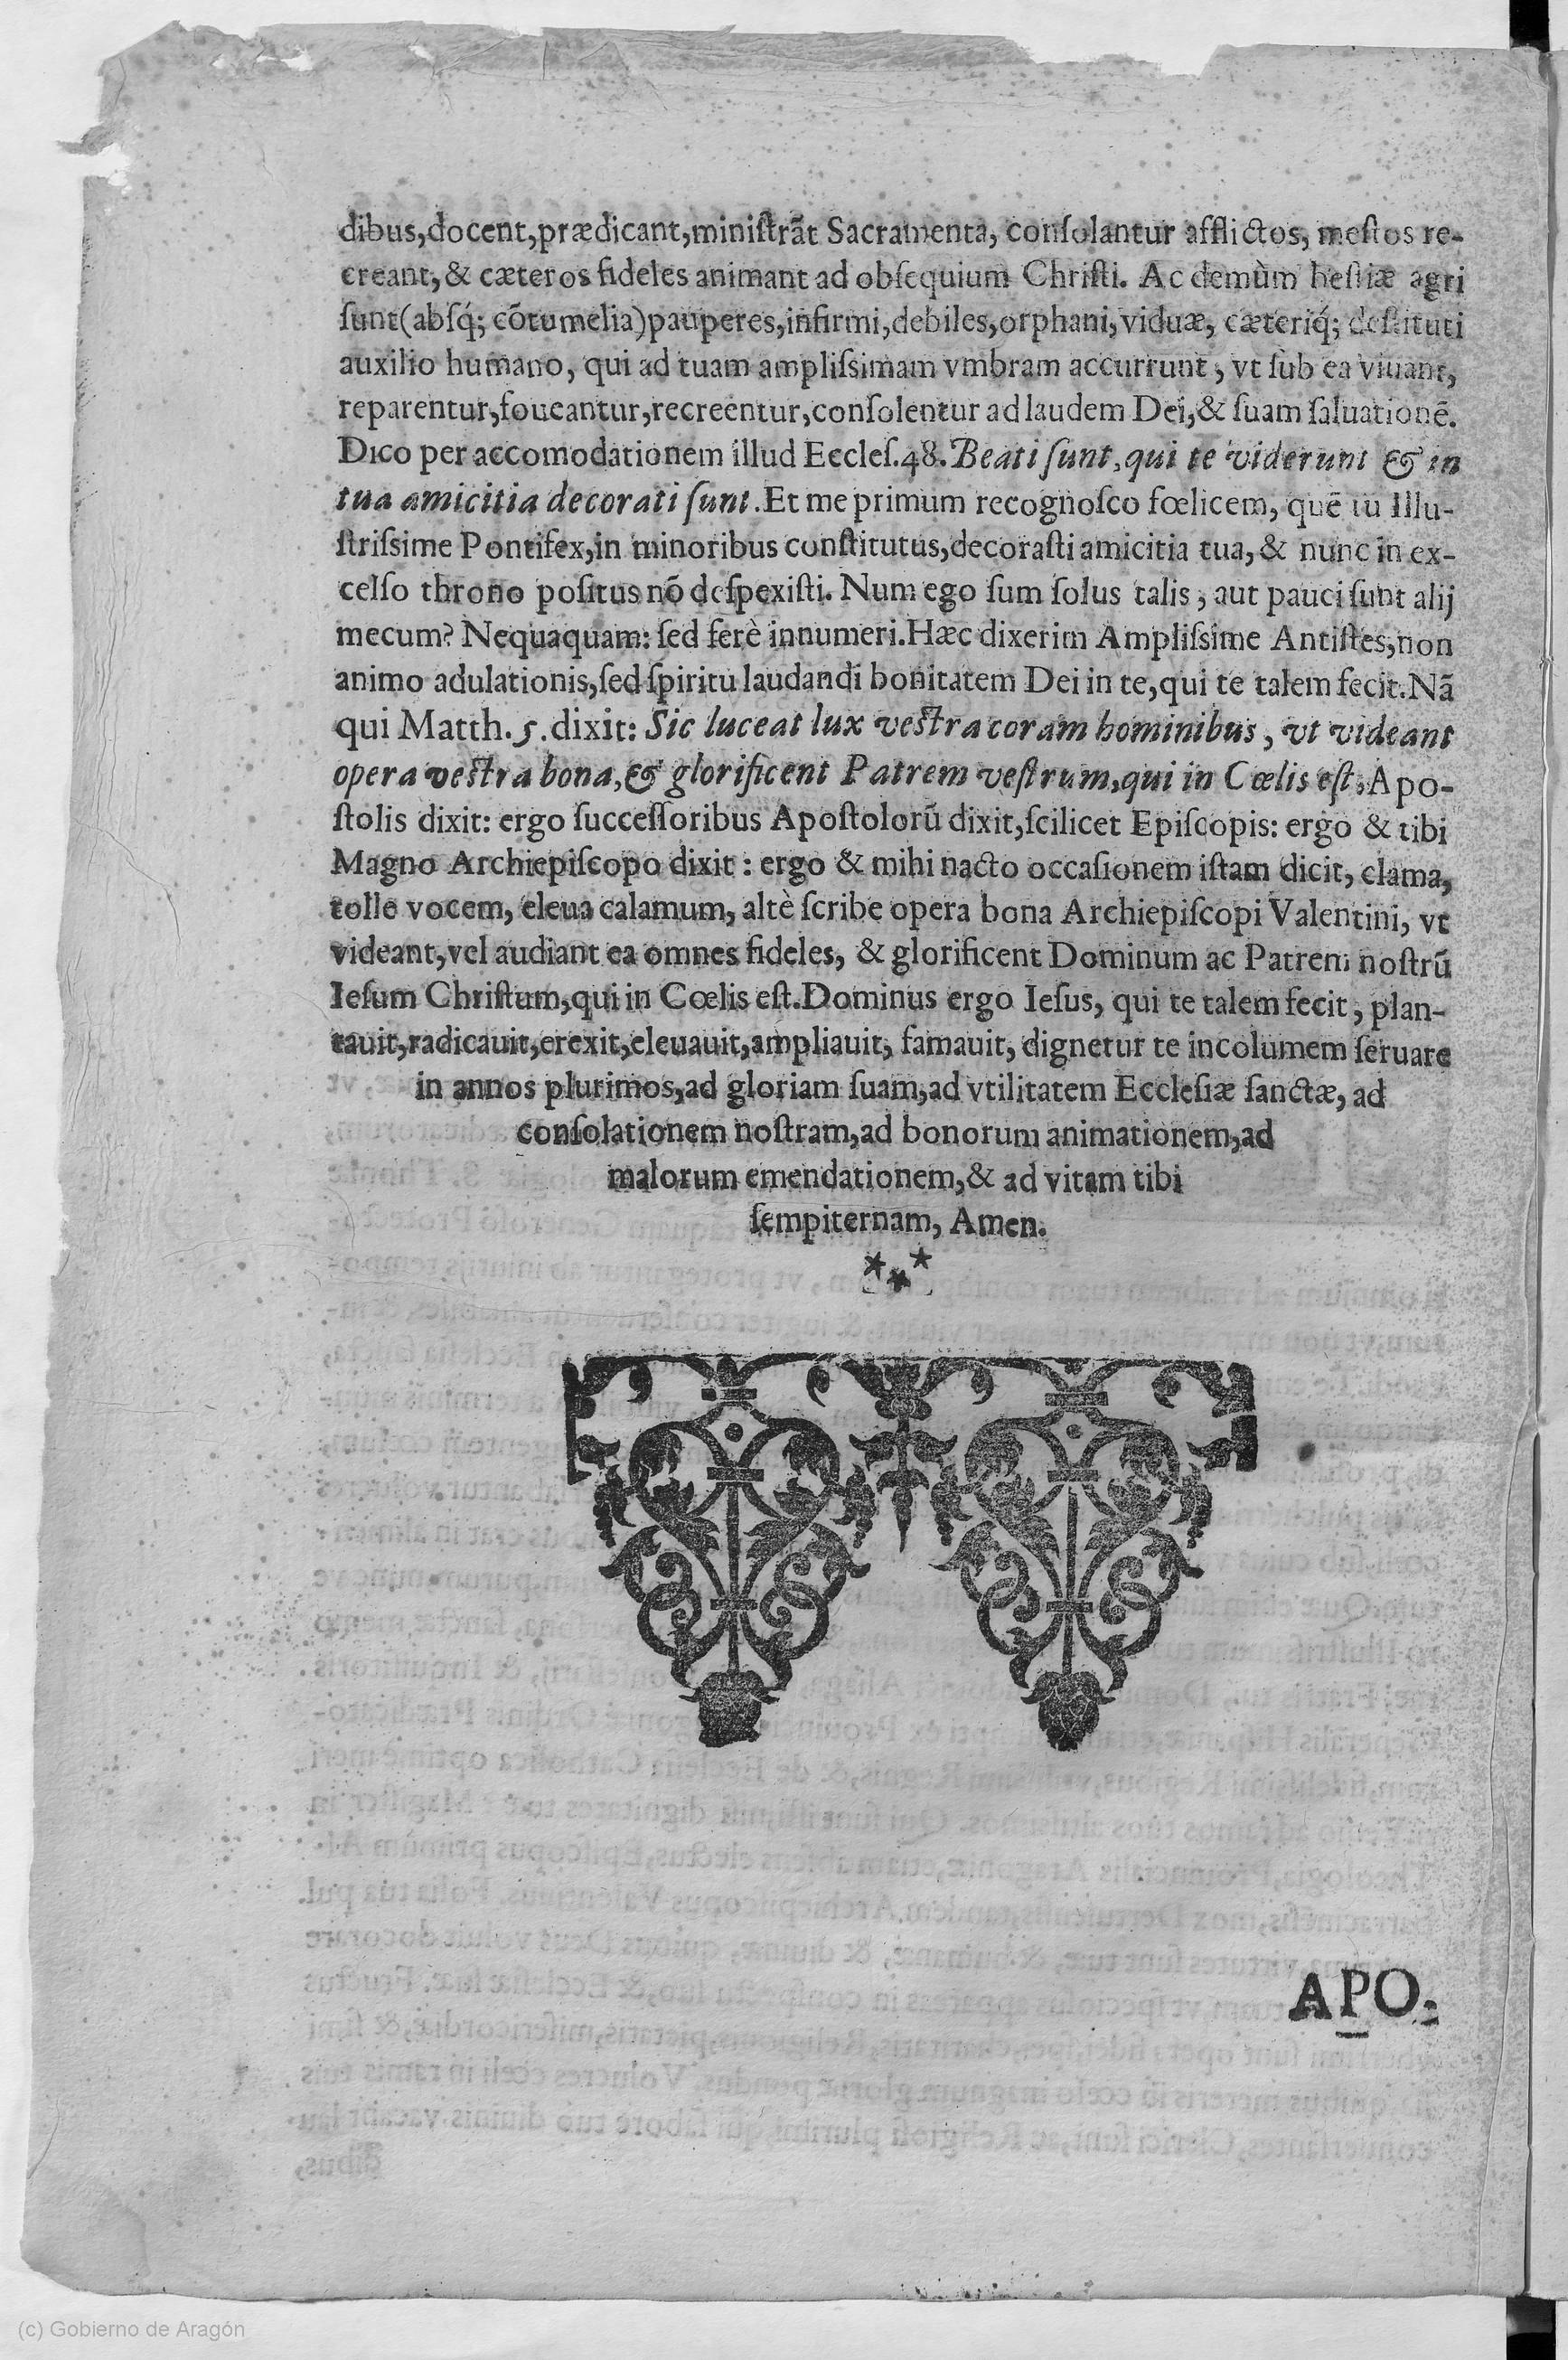 dibus,docent,prædicant,miniſtrãt Sacramenta, conſolantur afflictos, meſtos re-
creant, & cæteros fideles animant ad obſequium Chriſti. Ac demùm beſtiæ agri
ſunt(abſq́; cõtumelia)pauperes,infirmi,debiles,orphani,viduæ, cæteriq́; deſtituti
auxilio humano, qui ad tuam ampliſsimam vmbram accurrunt, vt ſub ea viuant,
reparentur,foueantur,recreentur,conſolentur ad laudem Dei,& ſuam ſaluationẽ.
Dico per accomodationem illud Eccleſ.48. Beati ſunt, qui te viderunt & in
tua amicitia decorati ſunt. Et me primum recognoſco fœlicem, quẽ tu Illu-
ſtriſsime Pontifex,in minoribus conſtitutus,decoraſti amicitia tua, & nunc in ex-
celſo throno poſitus nõ deſpexiſti. Num ego ſum ſolus talis, aut pauci ſunt alij
mecum? Nequaquam: ſed ferè innumeri.Hæc dixerim Ampliſsime Antiſtes,non
animo adulationis,ſed ſpiritu laudandi bonitatem Dei in te,qui te talem fecit.Nã
qui Matth.5.dixit: Sic luceat lux veſtra coram hominibus, vt videant
opera veſtra bona,& glorificent Patrem veſtrum,qui in Cœlis eſt,Apo-
ſtolis dixit: ergo ſucceſſoribus Apoſtolorũ dixit,ſcilicet Epiſcopis: ergo & tibi
Magno Archiepiſcopo dixit: ergo & mihi nacto occaſionem iſtam dicit, clama,
tolle vocem, eleua calamum, altè ſcribe opera bona Archiepiſcopi Valentini, vt
videant,vel audiant ea omnes fideles, & glorificent Dominum ac Patrem noſtrũ
Ieſum Chriſtum,qui in Cœlis eſt.Dominus ergo Ieſus, qui te talem fecit, plan-
tauit,radicauit,erexit,eleuauit,ampliauit, famauit, dignetur te incolumem ſeruare
in annos plurimos,ad gloriam ſuam,ad vtilitatem Eccleſiæ ſanctæ, ad
conſolationem noſtram,ad bonorum animationem,ad
malorum emendationem,& ad vitam tibi
ſempiternam, Amen.
APO-
(c) Gobierno de Aragón